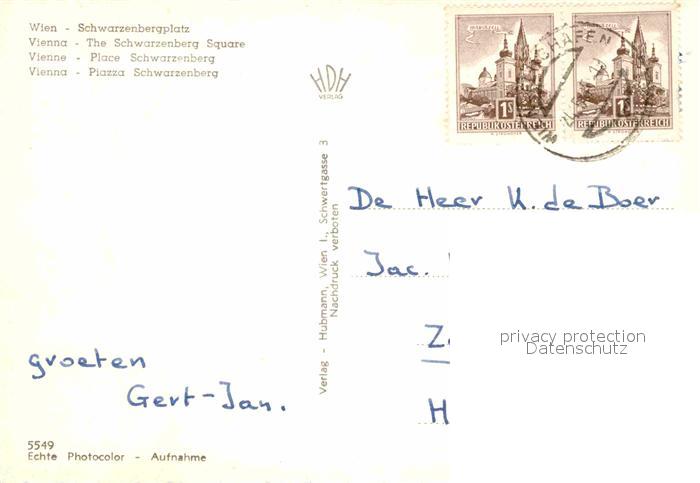 Wien - Schwarzenbergplatz
Vienna - The Schwarzenberg Square
Vienne - Place Schwarzenberg
Vienna - Piazza Schwarzenberg
HDH
VERLAG
MARIAZELL
1S
REPUBLIK ÖSTERREICH
1S
REPUBLIK ÖSTERREICH
Verlag - Hubmann, Wien I., Schwertgasse 3
Nachdruck verboten
De Heer K. de Boer
Jac.
privacy protection
Datenschutz
groeten
Gert-Jan.
5549
Echte Photocolor - Aufnahme